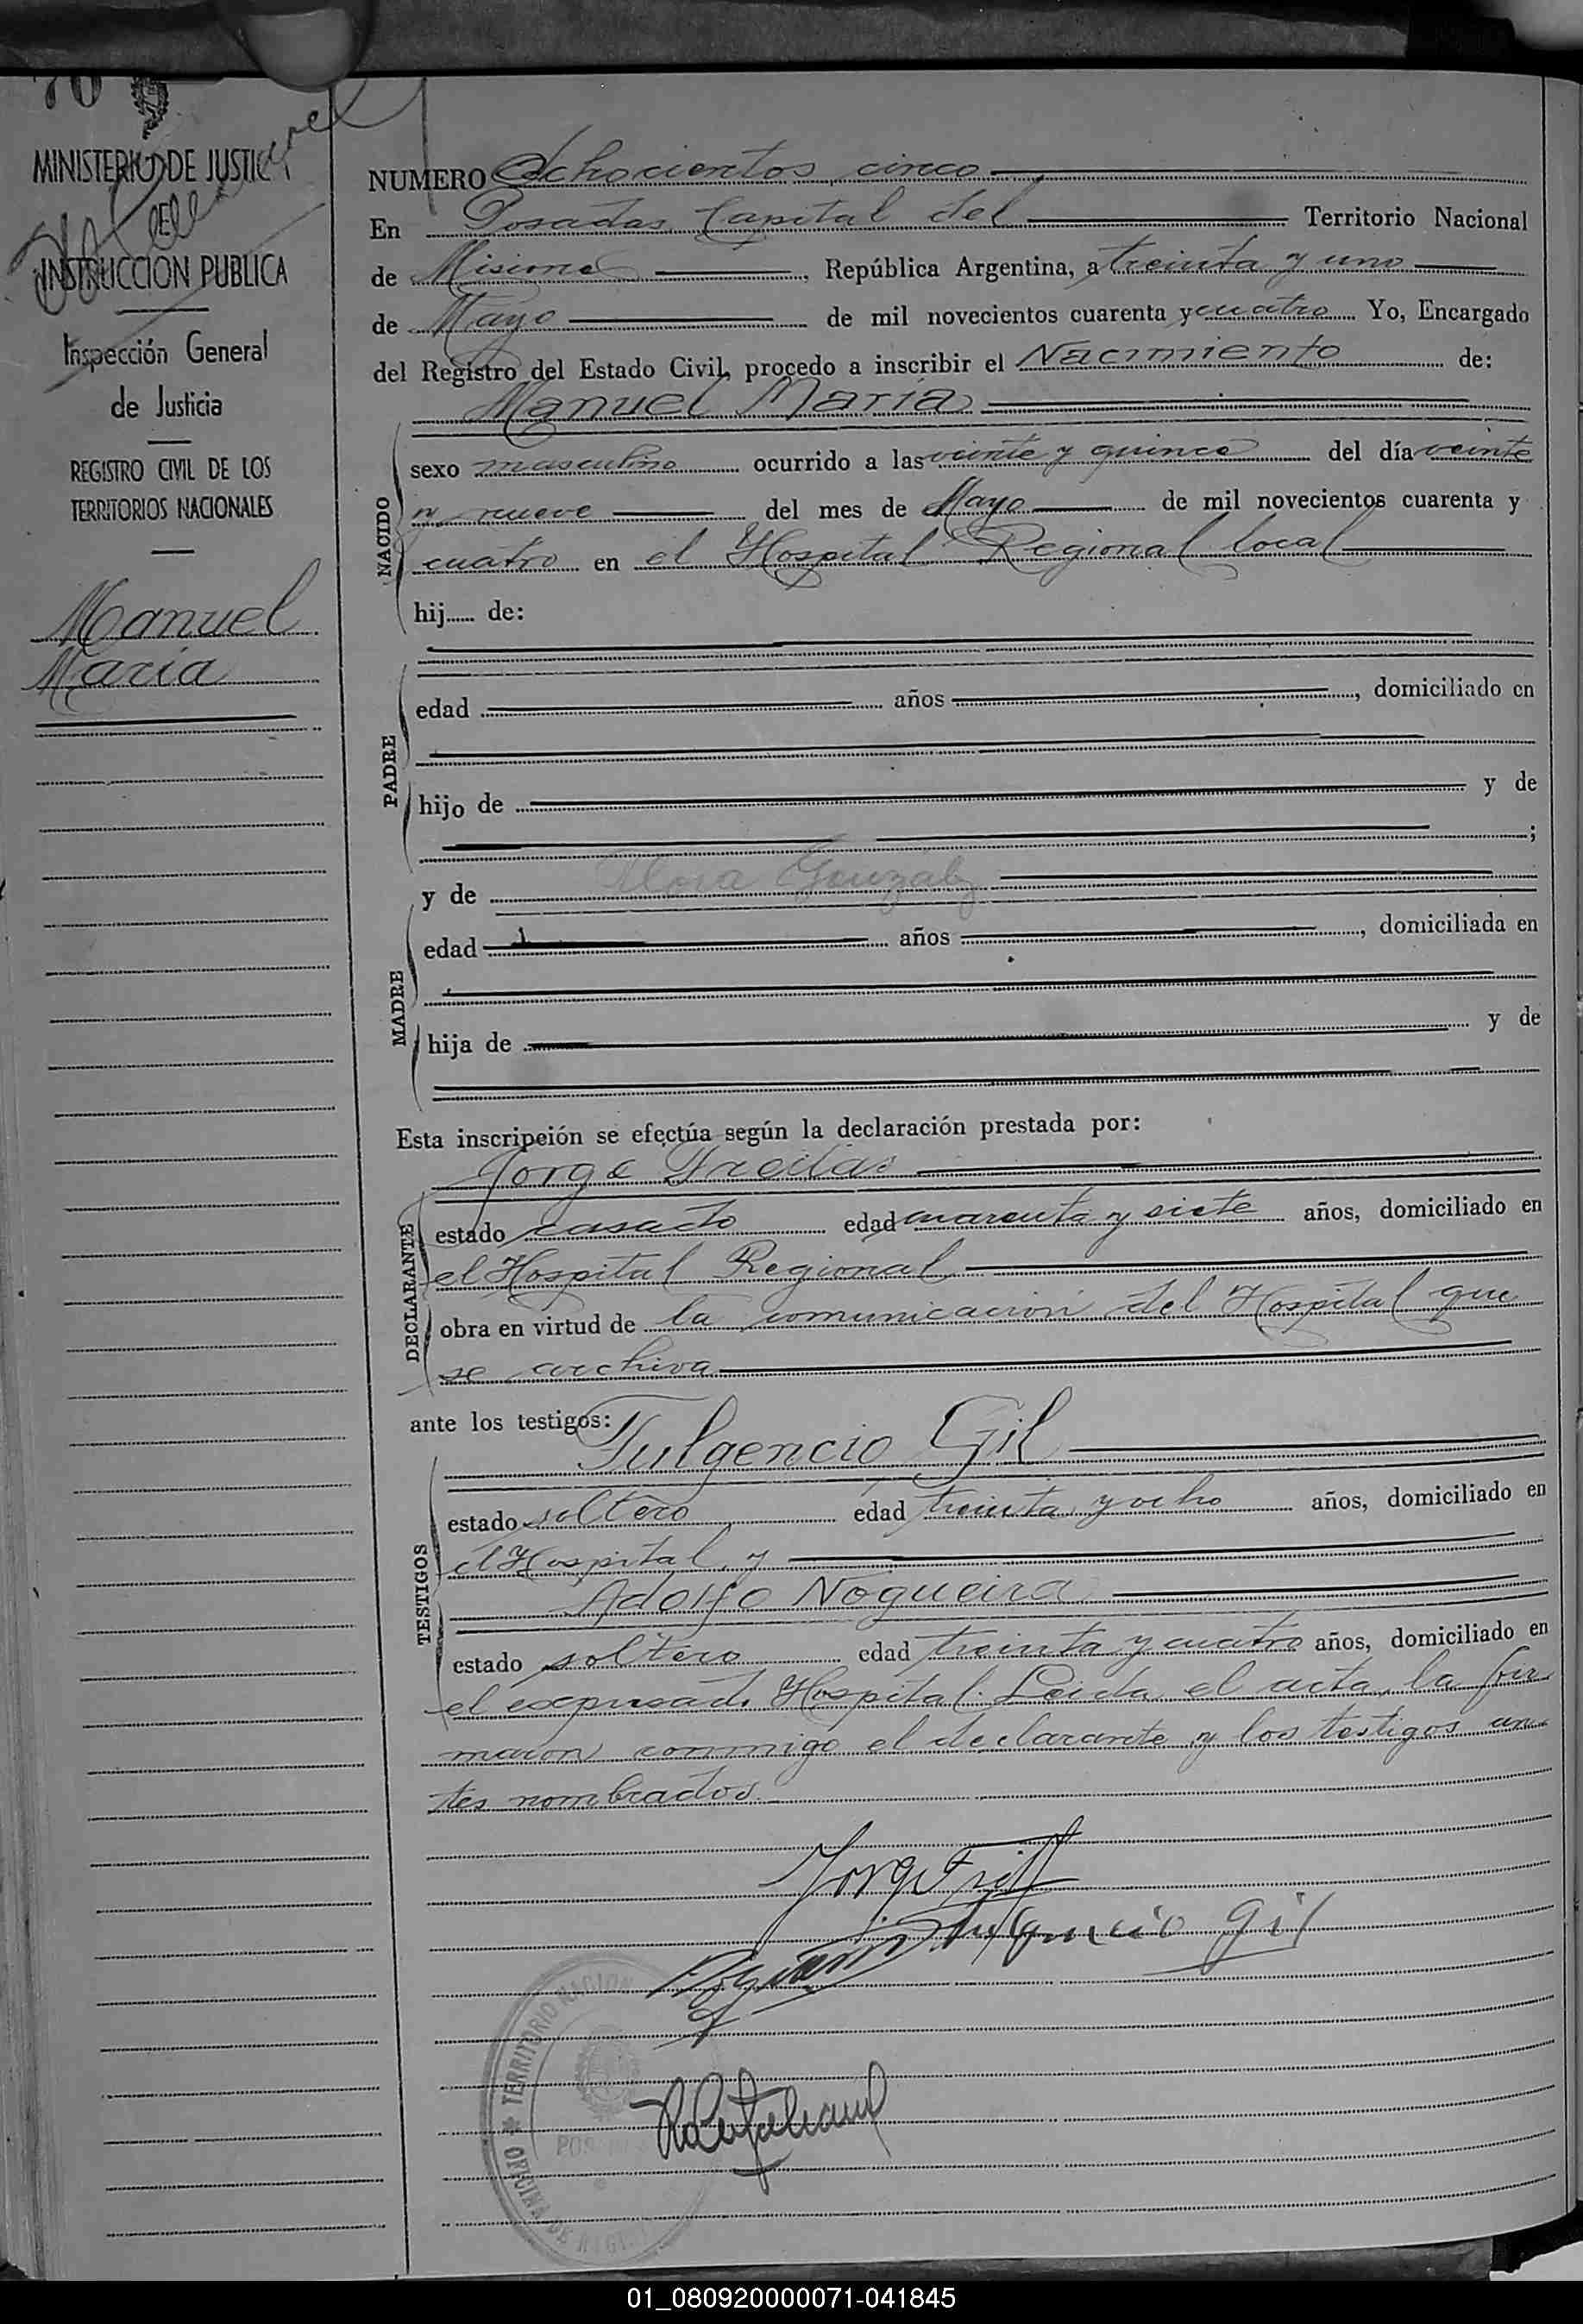 70
MINISTERIO DE JUSTICIA
E
INSTRUCCION PUBLICA
Inspección General
de Justicia
REGISTRO CIVIL DE LOS
TERRITORIOS NACIONALES
Manuel
Maria
NUMERO Ochocientos cinco
En Posadas Capital del Territorio Nacional
de Misiones, República Argentina, a treinta y uno
de Mayo de mil novecientos cuarenta y cuatro Yo, Encargado
del Registro del Estado Civil, procedo a inscribir el Nacimiento de:
Manuel Maria
NACIDO
sexo masculino ocurrido a las veinte y quince del día veinte
y nueve del mes de Mayo de mil novecientos cuarenta y
cuatro en el Hospital Regional local
hij...... de:
PADRE
edad años, domiciliado en
hijo de y de
;
y de Gonzalez
MADRE
edad años, domiciliada en
hija de y de
Esta inscripción se efectúa según la declaración prestada por:
Jorge Freitas
DECLARANTE
estado casado edad cuarenta y siete años, domiciliado en
el Hospital Regional
obra en virtud de la comunicación del Hospital que
se archiva
ante los testigos:
Fulgencio Gil
TESTIGOS
estado soltero edad treinta y ocho años, domiciliado en
el Hospital y
Adolfo Nogueira
estado soltero edad treinta y cuatro años, domiciliado en
el expresado Hospital. Leida el acta, la fir
maron conmigo el declarante y los testigos an
tes nombrados.
Fulgencio Gil
TERRITORIO NACION
OFICINA DE REGI
POS
01_080920000071-041845